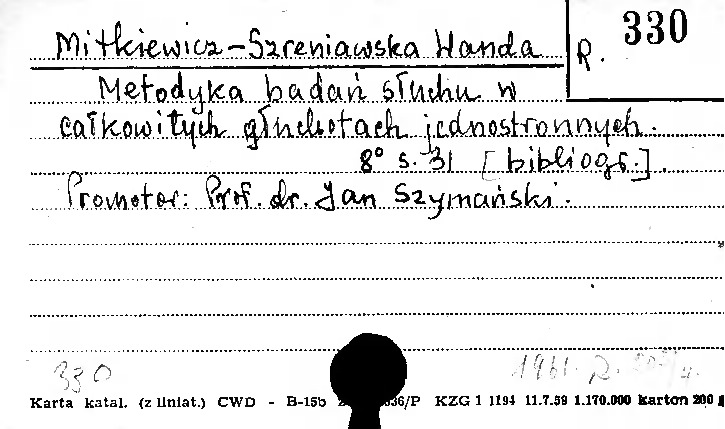 Mitkiewicz-Szreniawska Wanda
R. 330
Metodyka badań słuchu w
całkowitych głuchotach jednostronnych.
8° s. 31 [bibliogr.].
Promotor: Prof. dr. Jan Szymański.
330 1961.
Karta katal. (z liniat.) CWD - B-15b 36/P KZG 1 1194 11.7.59 1.170.000 karton 200 g